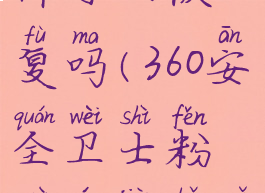 fù ma ān
复吗(360安
quán wèi shì fěn
全卫士粉